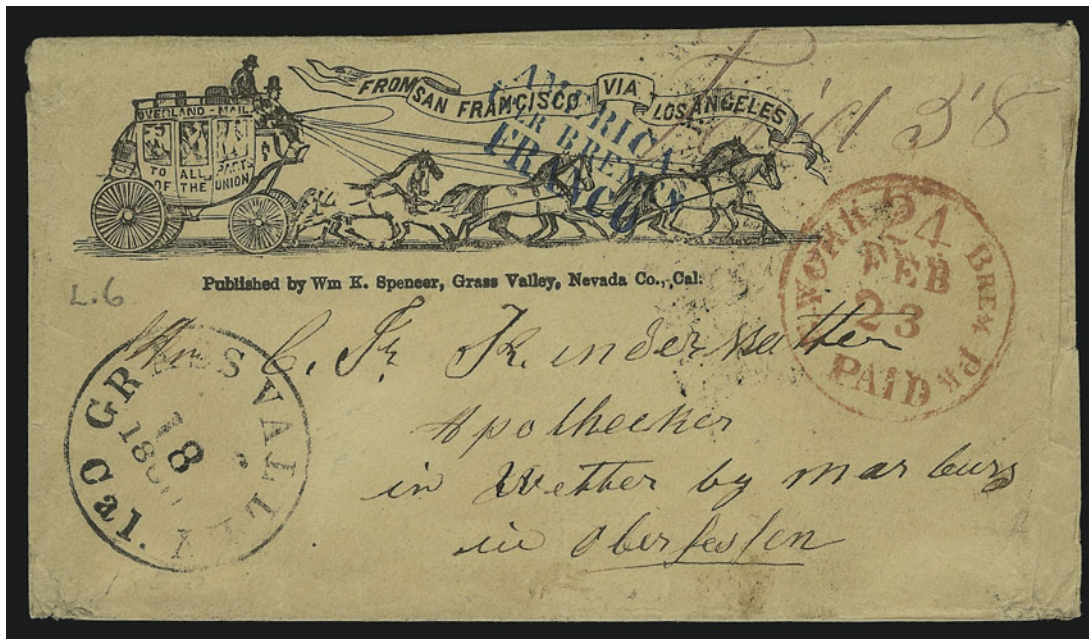 FROM SAN FRANCISCO VIA LOS ANGELES
OVERLAND-MAIL
TO ALL PARTS
OF THE UNION
AMERICA
UBER BREMEN
FRANCO
Paid 38
Published by Wm K. Spencer, Grass Valley, Nevada Co., Cal.
L.6
N. YORK BREM PK
24
FEB
23
PAID
GRASS VALLEY Cal.
18
C. Fr. Kindervatter
Apotheeker
in Wetter by marburg
in Oberhessen